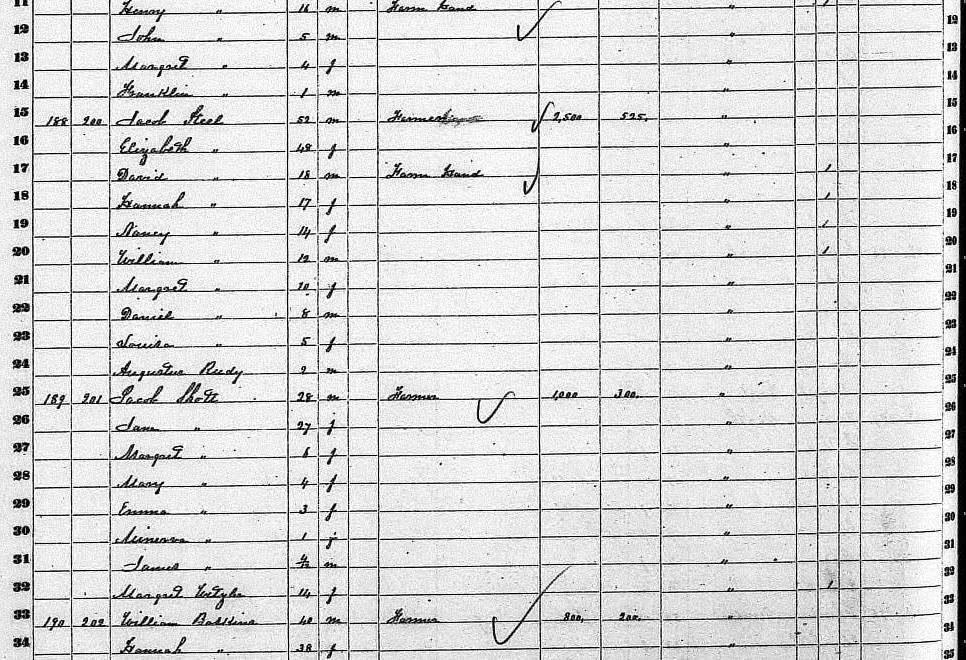 11 Henry " 16 m Farm Hand " 1
12 John 5 m " 12
13 Margret " 4 f " 13
14 Franklin " 1 m " 14
15 188 200 Jacob Steel 52 m Farmer 2,500 525. " 15
16 Elizabeth " 48 f " 16
17 David " 18 m Farm Hand " 1 17
18 Hannah " 17 f " 1 18
19 Nancy " 14 f " 1 19
20 William " 12 m " 1 20
21 Margret " 10 f " 21
22 Daniel " 8 m " 22
23 Louisa " 5 f " 23
24 Augustus Rudy 2 m " 24
25 189 201 Jacob Shott 28 m Farmer 1,000 300. " 25
26 Jane " 27 f " 26
27 Margret " 6 f " 27
28 Mary " 4 f " 28
29 Emma " 3 f " 29
30 Minerva " 1 f " 30
31 James " m " 31
32 Margret 14 f " 1 32
33 190 202 William 40 m Farmer 800. 200. " 33
34 Hannah " 38 f " 34
35